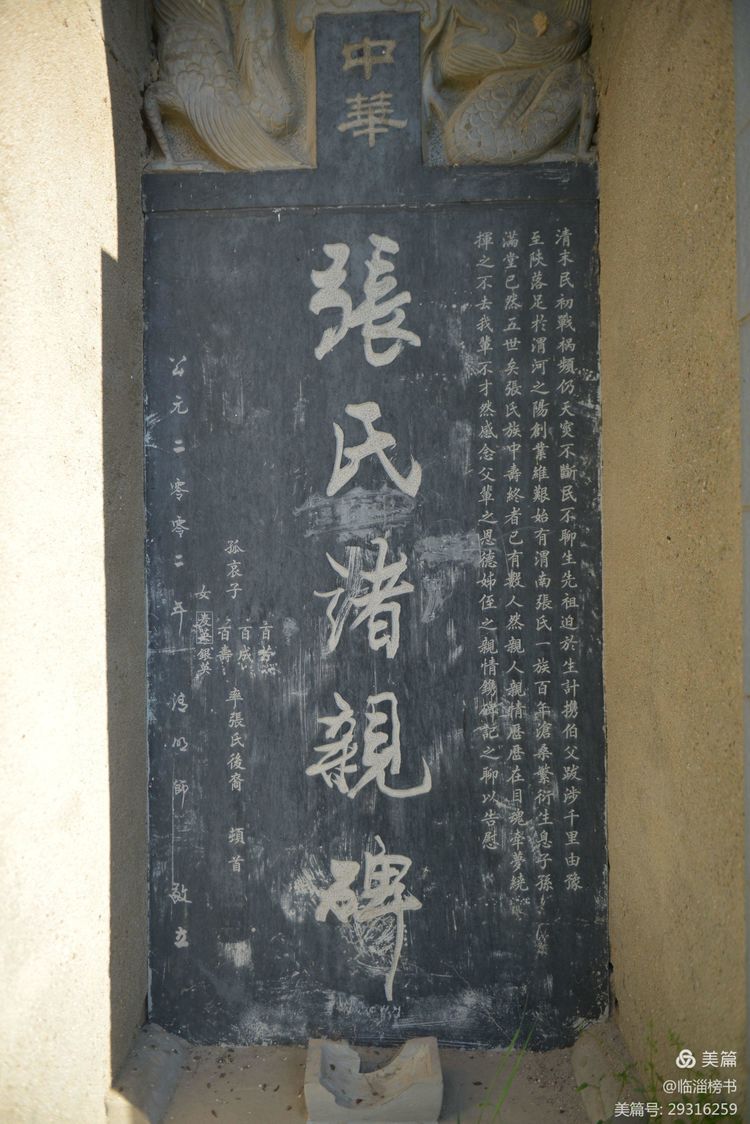 中華
清末民初戰祸頻仍天灾不斷民不聊生先祖迫於生計携伯父跋涉千里由豫
至陕落足於渭河之陽創業維艱始有渭南張氏一族百年滄桑繁衍生息子孫
满堂已然五世矣張氏族中壽終者已有数人然親人親情歷歷在目魂牽夢繞
揮之不去我輩不才然感念父輩之恩德姊侄之親情鐫碑記之聊以告慰
張氏诸親碑
孤哀子
百成
百壽
女
銀英
率張氏後裔 頓首
公元二零零二年清明師 敬立
美篇
@临淄榜书
美篇号: 29316259